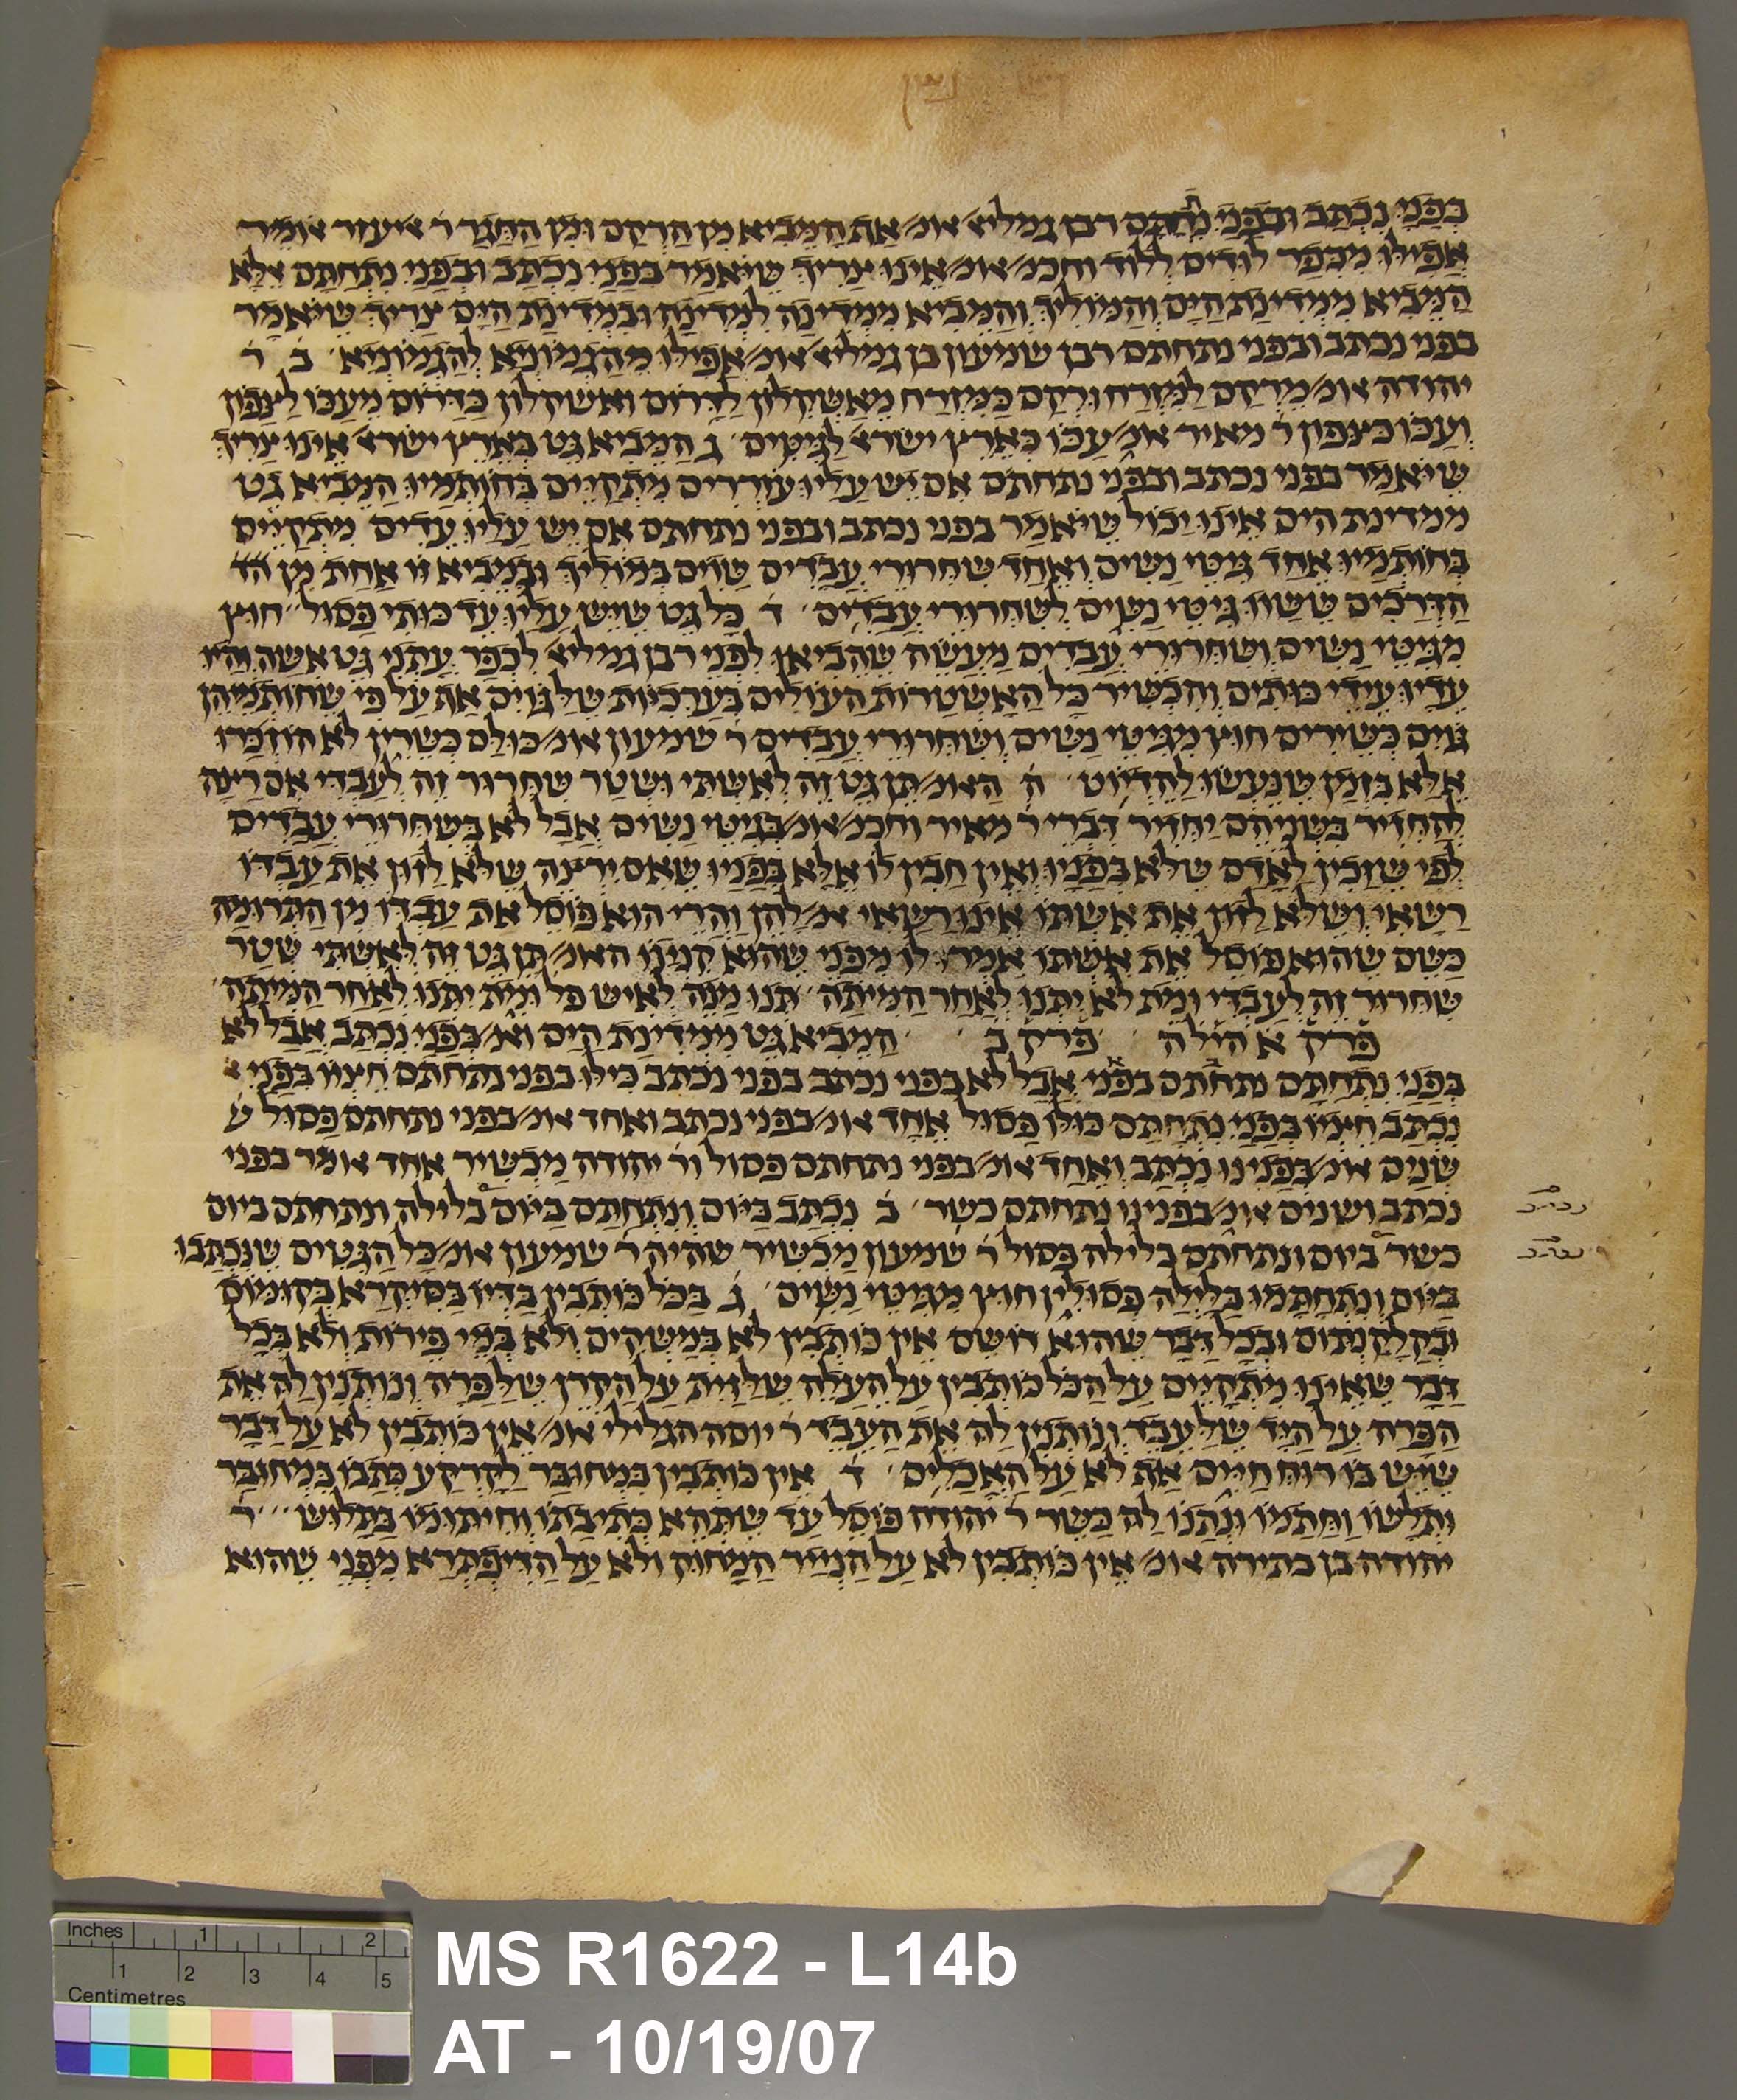 בפני נכתב ובפני נחתם רבן גמליא׳ אומ׳ אף המביא מן הרקם ומן החגר ר׳ אליעזר אומר
אפילו מכפר לודים ללוד וחכמ׳ אומ׳ אינו צריך שיאמר בפני נכתב ובפני נתחתם אלא
המביא ממדינת הים והמוליך והמביא ממדינה למדינה ובמדינת הים צריך שיאמר
בפני נכתב ובפני נתחתם רבן שמעון בן גמליא׳ אומ׳ אפילו מהגמוניא להגמוניא ׳ ב ר׳
יהודה אומ׳ מרקם למזרח ורקם כמזרח מאשקלון לדרום ואשקלון כדרום מעכו לצפון
ועכו כצפון ר׳ מאיר אומ׳ עכו כארץ ישרא׳ לגיטים ׳ ג המביא גט בארץ ישרא׳ אינו צריך
שיאמר בפני נכתב ובפני נתחתם אם יש עליו עוררים מתקיים בחותמיו המביא גט
ממדינת הים אינו יכול שיאמר בפני נכתב ובפני נתחתם אם יש עליו עדים מתקיים
בחותמיו אחד גיטי נשים ואחד שחרורי עבדים שוים במוליך ובמביא זו אחת מן
הדרכים ששוו גיטי נשים לשחרורי עבדים ׳ ד כל גט שיש עליו עד כותי פסול חוץ
מגיטי נשים ושחרורי עבדים מעשה שהביאו לפני רבן גמליא׳ לכפר עתני גט אשה והיו
עדיו עידי כותים והכשיר כל האשטרות העולים בערכיות שלגוים אף על פי שחותמיהן
גוים כשירים חוץ מגיטי נשים ושחרורי עבדים ר׳ שמעון אומ׳ כולם כשרין לא הוזכרו
אלא בזמן שנעשו להדיוט ׳ ה האומ׳ תן גט זה לאשתי ושטר שחרור זה לעבדי אם רצה
להחזיר בשניהם יחזיר דברי ר׳ מאיר וחכמ׳ אומ׳ בגיטי נשים אבל לא בשחרורי עבדים
לפי שזכין לאדם שלא בפניו ואין חבין לו אלא בפניו שאם ירצה שלא לזון את עבדו
רשאי ושלא לזון את אשתו אינו רשאי אמ׳ להן והרי הוא פוסל את עבדו מן התרומה
כשם שהוא פוסל את אשתו אמרו לו מפני שהוא קנינו האומ׳ תן גט זה לאשתי שטר
שחרור זה לעבדי ומת לא יתנו לאחר המיתה ׳ תנו מנה לאיש פל׳ ומת יתנו לאחר המיתה ׳
פרק א הולה ׳ פרק ב ׳ המביא גט ממדינת הים ואמ׳ בפני נכתב אבל לא
בפני נתחתם נתחתם בפני אבל לא בפני נכתב בפני נכתב כולו בפני נתחתם חציו בפני
נכתב חציו בפני נתחתם כולו פסול אחד אומ׳ בפני נכתב ואחד אומ׳ בפני נתחתם פסול
שנים אומ׳ בפנינו נכתב ואחד אומ׳ בפני נתחתם פסול ור׳ יהודה מכשיר אחד אומר בפני
נכתב ושנים אומ׳ בפנינו נתחתם כשר ׳ ב נכתב ביום ונתחתם ביום בלילה ונתחתם ביום
כשר ביום ונתחתם בלילה פסול ר׳ שמעון מכשיר שהיה ר׳ שמעון אומ׳ כל הגטים שנכתבו
ביום ונתחתמו בלילה פסולין חוץ מגיטי נשים ׳ ג בכל כותבין בדיו בסיקרא בקומוס
ובקלקנתוס ובכל דבר שהוא רושם אין כותבין לא במשקים ולא במי פירות ולא בכל
דבר שאינו מתקיים על הכל כותבין על העלה שלזית על הקרן שלפרה ונותנין לה את
הפרה על היד שלעבד ונותנין לה את העבד ר׳ יוסה הגלילי אומ׳ אין כותבין לא על דבר
שיש בו רוח חיים אף לא על האכלים ׳ ד אין כותבין במחובר לקרקע כתבו במחובר
ותלשו וחתמו ונתנו לה כשר ר׳ יהודה פוסל עד שתהא כתיבתו וחיתומו בתלוש ׳ ׳ ר׳
יהודה בן בתירה אומ׳ אין כותבין לא על הנייר המחוק ולא על הדיפתרא מפני שהוא
Inches 1 2
1 2 3 4 5
Centimetres
MS R1622 - L14b
AT - 10/19/07